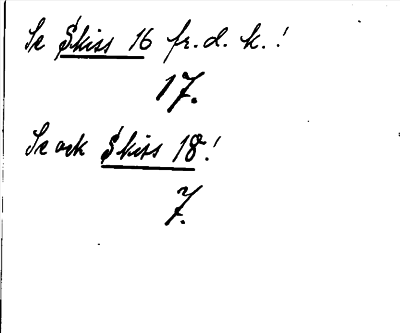 Se Skiss 16 fr. d. k.!
17.
Se ock Skiss 18!
7.